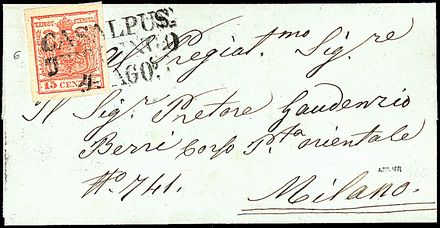 CASALPUS:
LENGO
AGO:
15 CENTES
Al Pregiat.mo Sig.re
Il Sig.r Pretore Gaudenzio
Berri Corso P.ta orientale
No. 741.
Milano.